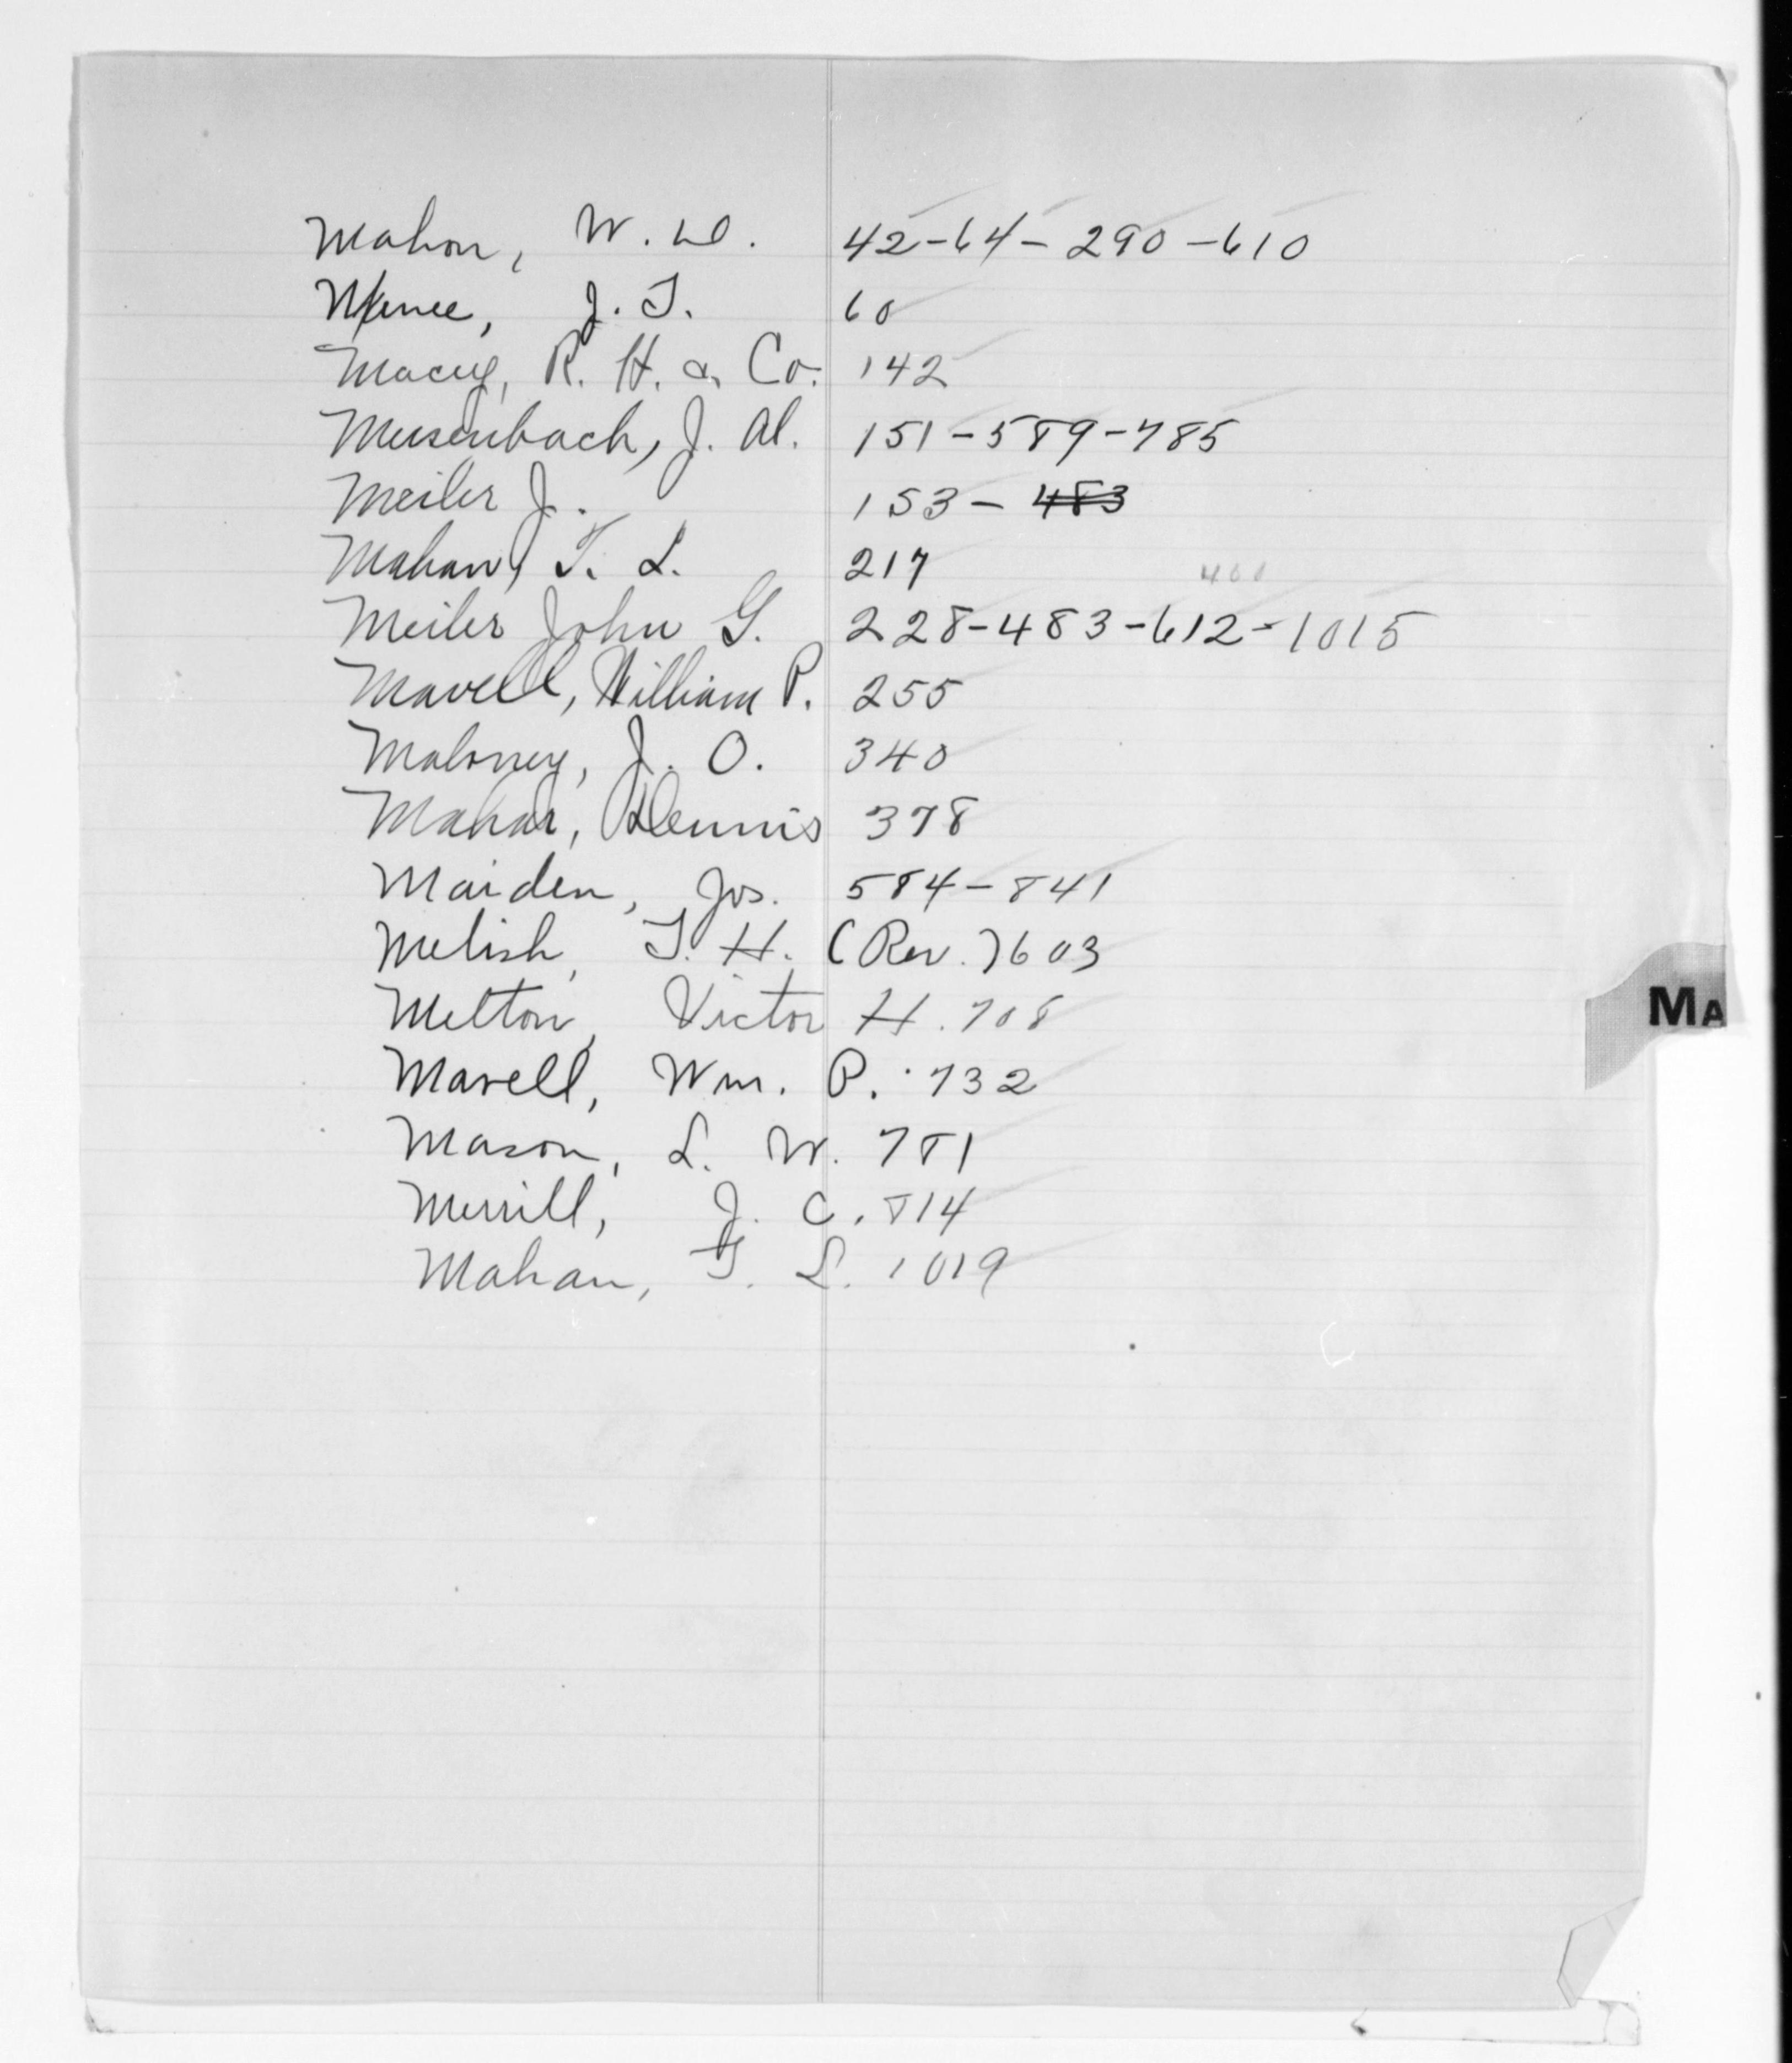 Mahon, W. D. 42-64-290-610
Menee, J. T. 60
Macey, R. H. & Co. 142
Meusenbach, J. Al. 151-589-785
Meiler J. 153-483
Mahan, T. L. 217
400
Meiler John G. 228-483-612-1015
Mavell, William P. 255
Maloney, J. O. 340
Mahar, Dennis 378
Maiden, Jos. 584-841
Melish, T. H. (Rev.) 603
Melton, Victor H. 708
Mavell, Wm. P. 732
MA
Mason, L. W. 781
Merrill, J. C. 814
Mahan, T. L. 1019